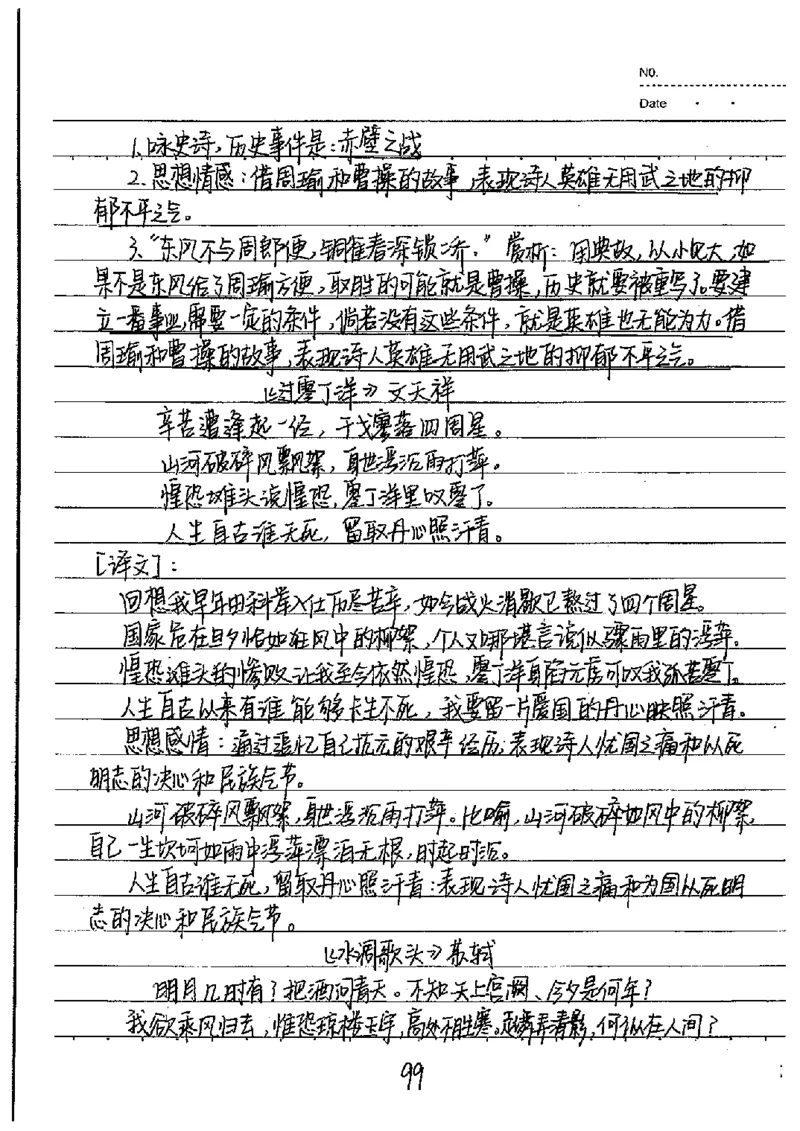 NO.
Date
1.咏史诗,历史事件是:赤壁之战
2.思想情感:借周瑜和曹操的故事,表现诗人英雄无用武之地的抑
郁不平之气。
3."东风不与周郎便,铜雀春深锁二乔。"赏析:用典故,以小见大,如
果不是东风给了周瑜方便,取胜的可能就是曹操,历史就要被重写了。要建
立一番事业,需要一定的条件,倘若没有这些条件,就是英雄也无能为力。借
周瑜和曹操的故事,表现诗人英雄无用武之地的抑郁不平之气。
《过零丁洋》文天祥
辛苦遭逢起一经,干戈寥落四周星。
山河破碎风飘絮,身世浮沉雨打萍。
惶恐滩头说惶恐,零丁洋里叹零丁。
人生自古谁无死,留取丹心照汗青。
[译文]:
回想我早年由科举入仕历尽苦辛,如今战火消歇已熬过了四个周星。
国家危在旦夕恰如狂风中的柳絮,个人又哪堪言说似骤雨里的浮萍。
惶恐滩头的惨败让我至今依然惶恐,零丁洋身陷元虏可叹我孤苦零丁。
人生自古以来有谁能够长生不死,我要留一片爱国的丹心映照汗青。
思想感情:通过追忆自己抗元的艰辛经历,表现诗人忧国之痛和以死
明志的决心和民族气节。
山河破碎风飘絮,身世浮沉雨打萍。比喻,山河破碎如风中的柳絮,
自己一生坎坷如雨中浮萍漂泊无根,时起时沉。
人生自古谁无死,留取丹心照汗青:表现诗人忧国之痛和为国以死明
志的决心和民族气节。
《水调歌头》苏轼
明月几时有?把酒问青天。不知天上宫阙、今夕是何年?
我欲乘风归去,惟恐琼楼玉宇,高处不胜寒。起舞弄清影,何似在人间?
99